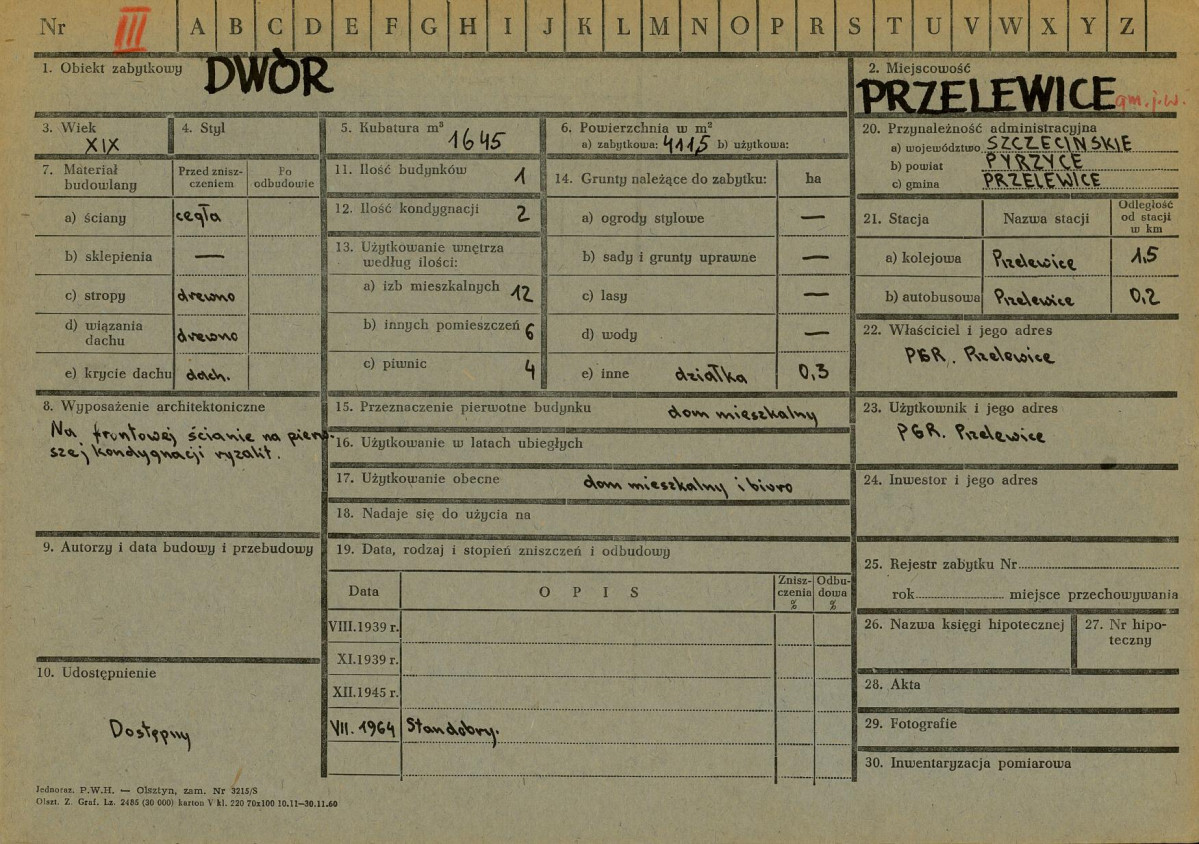 Nr III A B C D E F G H I J K L M N O P R S T U V W X Y Z
1. Obiekt zabytkowy DWÓR
2. Miejscowość
PRZELEWICE gm. j. w.
3. Wiek
XIX
4. Styl
5. Kubatura m³ 1645
6. Powierzchnia w m²
a) zabytkowa: 411,5 b) użytkowa:
7. Materiał
budowlany
Przed znisz-
czeniem
Po
odbudowie
a) ściany cegła
b) sklepienia —
c) stropy drewno
d) wiązania
dachu drewno
e) krycie dachu dach.
8. Wyposażenie architektoniczne
Na frontowej ścianie na pierw-
szej kondygnacji ryzalit.
9. Autorzy i data budowy i przebudowy
10. Udostępnienie
Dostępny
11. Ilość budynków 1
12. Ilość kondygnacji 2
13. Użytkowanie wnętrza
według ilości:
a) izb mieszkalnych 12
b) innych pomieszczeń 6
c) piwnic 4
14. Grunty należące do zabytku: ha
a) ogrody stylowe —
b) sady i grunty uprawne —
c) lasy —
d) wody —
e) inne działka 0,3
15. Przeznaczenie pierwotne budynku dom mieszkalny
16. Użytkowanie w latach ubiegłych
17. Użytkowanie obecne dom mieszkalny i biuro
18. Nadaje się do użycia na
19. Data, rodzaj i stopień zniszczeń i odbudowy
Data OPIS
Znisz-
czenia
%
Odbu-
dowa
%
VIII.1939 r.
XI.1939 r.
XII.1945 r.
VII. 1964 Stan dobry.
20. Przynależność administracyjna
a) województwo SZCZECIŃSKIE
b) powiat PYRZYCE
c) gmina PRZELEWICE
21. Stacja Nazwa stacji
Odległość
od stacji
w km
a) kolejowa Przelewice 1,5
b) autobusowa Przelewice 0,2
22. Właściciel i jego adres
PGR. Przelewice
23. Użytkownik i jego adres
PGR. Przelewice
24. Inwestor i jego adres
25. Rejestr zabytku Nr
rok miejsce przechowywania
26. Nazwa księgi hipotecznej
27. Nr hipo-
teczny
28. Akta
29. Fotografie
30. Inwentaryzacja pomiarowa
Jednoraz. P.W.H. — Olsztyn, zam. Nr 3215/S
Olszt. Z. Graf. Lz. 2485 (30 000) karton V kl. 220 70x100 10.11—30.11.60